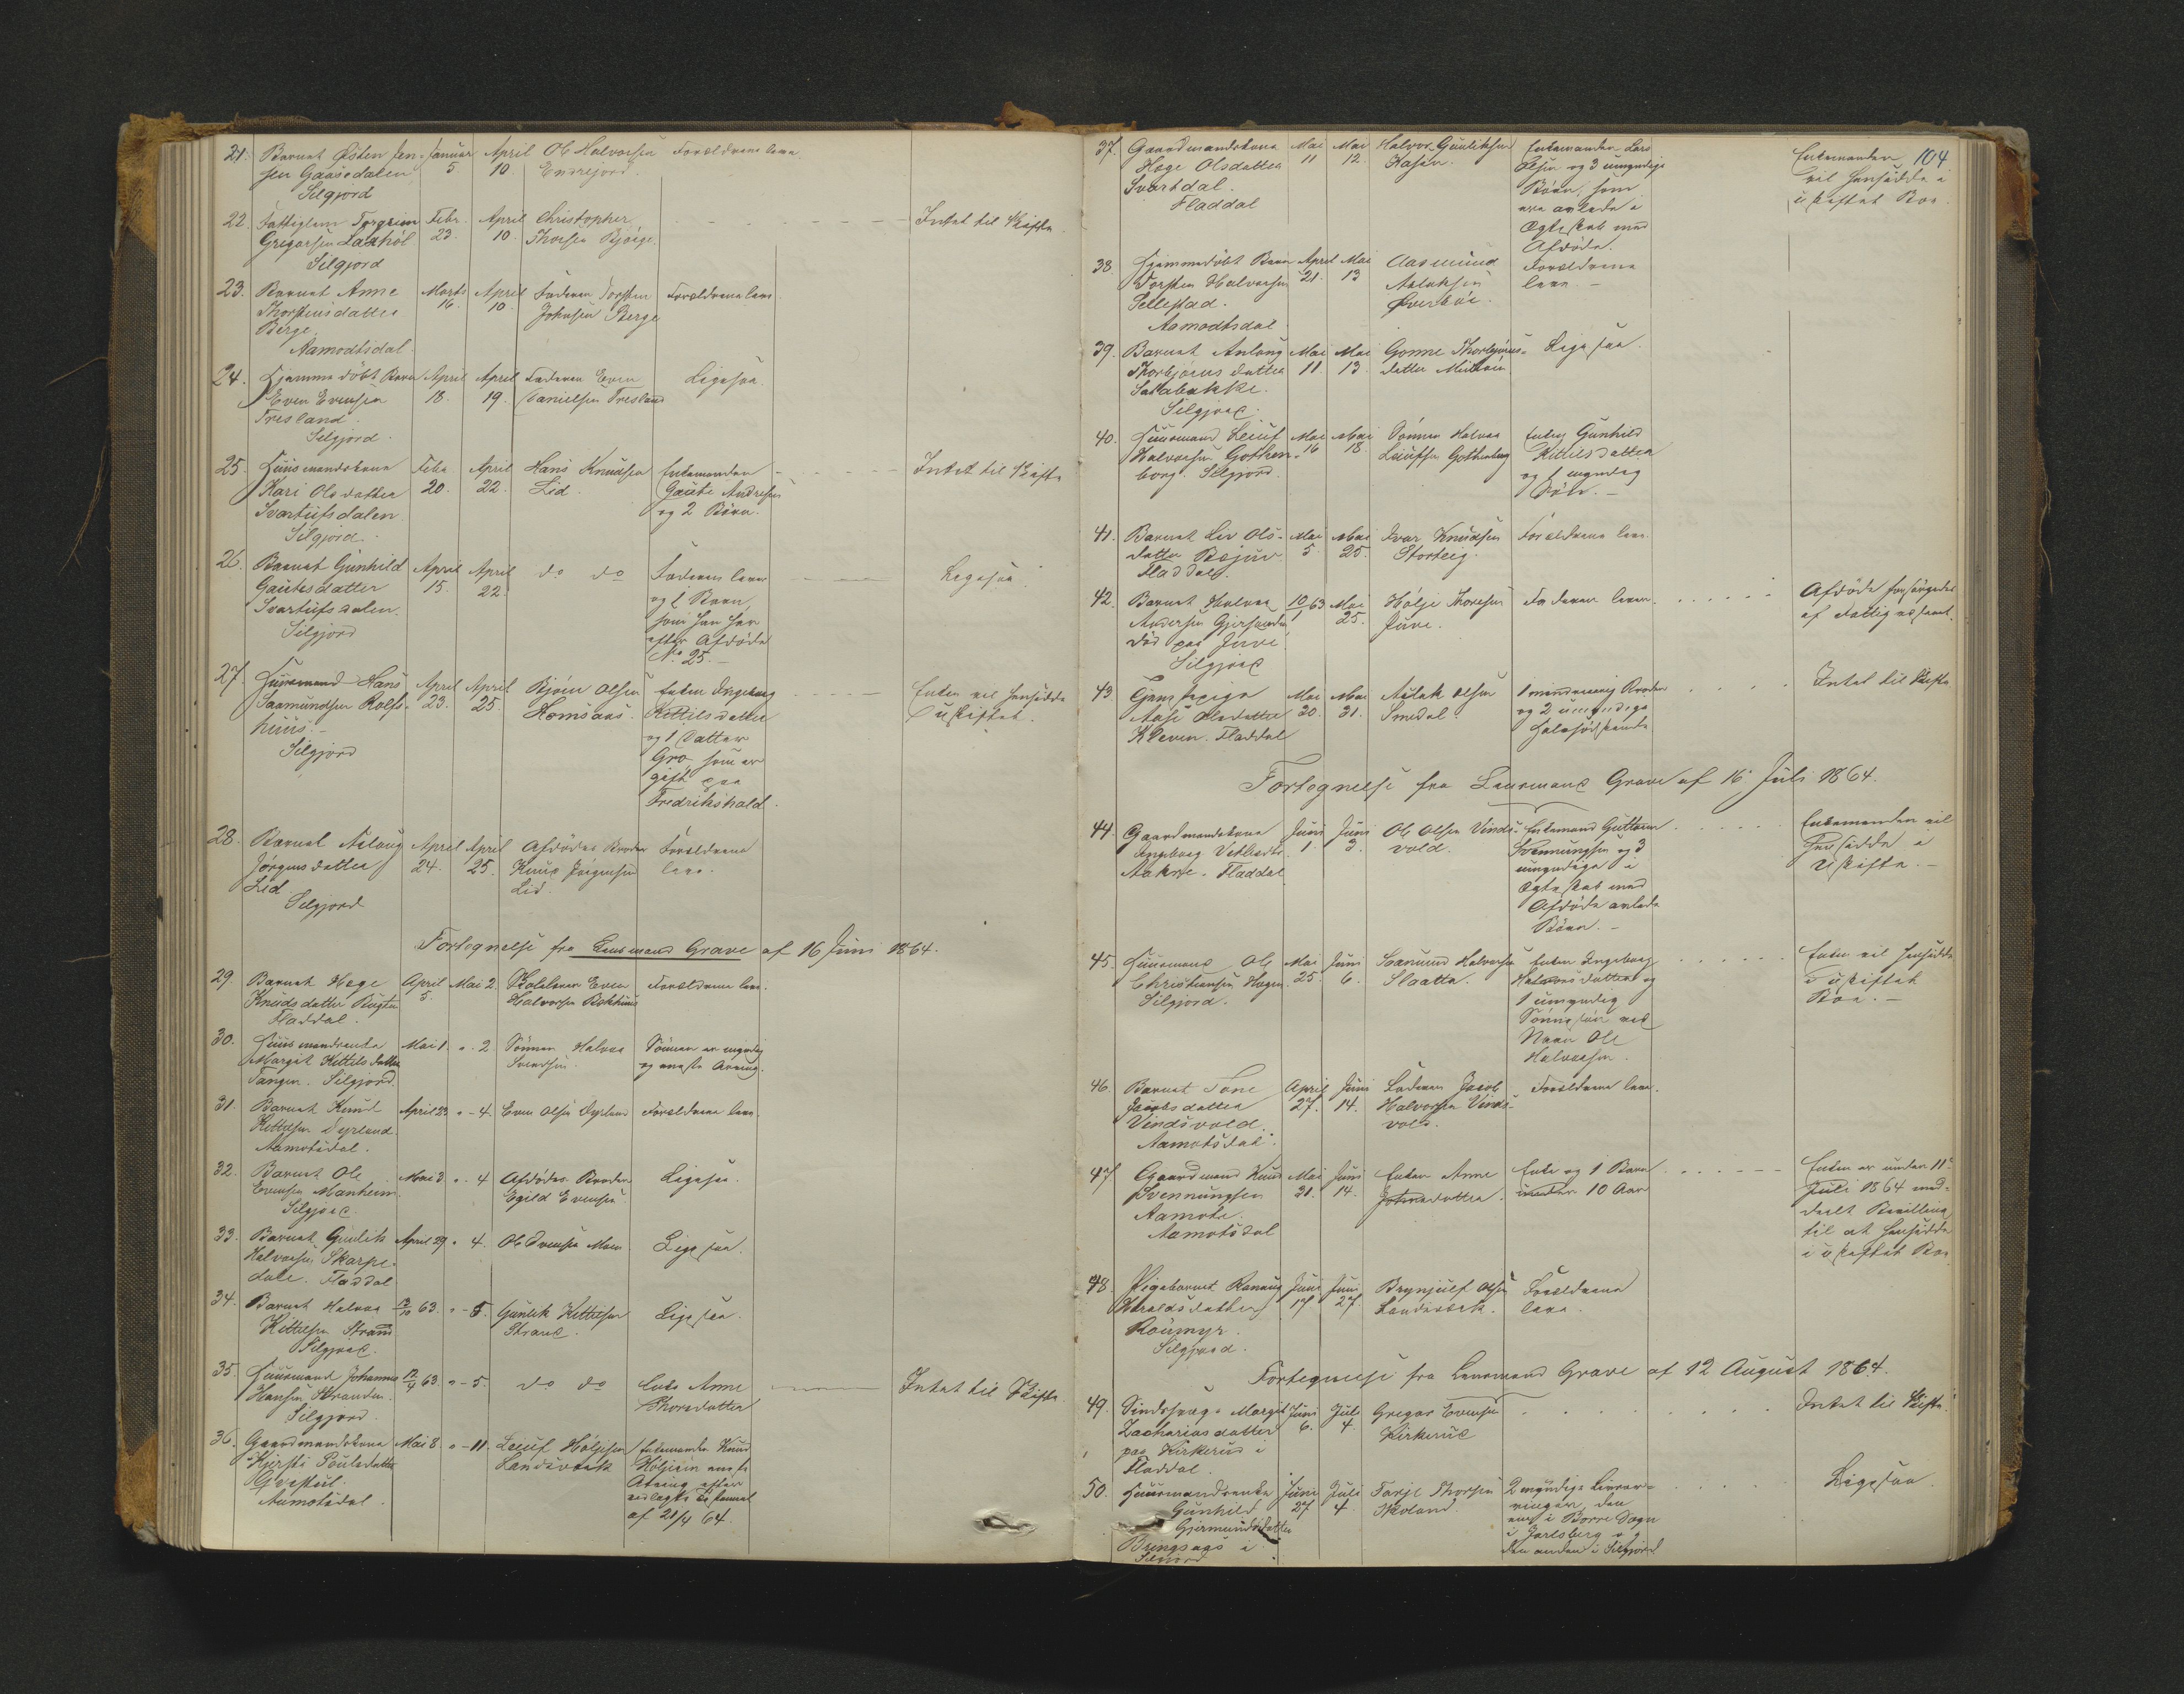 21. Barnet Østen Jen- Januar April Ole Halvorsen Forældrene leve.
sen Gaasedalen 5 10. Ensrejord.
Silgjord
22. Fattiglem Torgrim Febr. April Christopher Intet til Skifte.
Gregarsen Laxhöl 23. 10. Thorsen Bjørge.
Silgjord
23. Barnet Anne Marts April Faderen Torsten Forældrene leve.
Thorsteinsdatter 16. 10. Johnsen Berge
Berge.
Aamodtsdal.
24. Hjemmedöbt Barn April April Faderen Even Ligesaa.
Even Evensen 18. 19. Danielsen Tresland
Tresland.
Silgjord.
25. Huusmandskone Febr. April Hans Knudsen Enkemanden Intet til Skifte
Kari Olsdatter 20. 22. Lid. Gaute Andresen
Svartufsdalen og 2 Börn.
Silgjord.
26. Barnet Gunhild April April do do Faderen lever Ligesaa.
Gautesdatter 15. 22. og 1 Barn,
Svartufsdalen. som han har
Silgjord efter Afdöde
No 25.
27. Huusmand Hans April April Björn Olsen Enken Ingeborg Enken vil hensidde
Saamundsen Rolfs- 23. 25. Homsaas. Kittilsdatter i uskiftet.
huus. og 1 Datter
Silgjord Gro, som er
gift paa
Fredrikshald.
28. Barnet Aslaug April April Afdödes Broder Forældrene
Jörgensdatter 24. 25. Knud Jörgensen leve.
Lid Lid.
Silgjord
Fortegnelse fra Lensmand Grave af 16 Juni 1864.
29. Barnet Hege April Mai 2. Skolelærer Even Forældrene leve.
Knudsdatter 5. Halvorsen Bakhuus
Fladdal.
30. Huusmandsenke Mai 1. " 2. Sönnen Halvor Sönnen er myndig
Margit Kittilsdatter Svendsen. og eneste Arving.
Tangen. Silgjord.
31. Barnet Knud April 23 " 4. Even Olsen Dyrland Forældrene leve.
Kittilsen Dyrland.
Aamotsdal.
32. Barnet Ole Mai 3. " 4 Afdödes Broder Ligesaa.
Evensen Manheim. Egild Evensen.
Silgjord.
33. Barnet Gunlek April 29 " 4. Ole Svensen Moen Ligesaa.
Halvorsen Skarpe-
dale. Fladdal
34. Barnet Halvor 63. " 5. Gunlek Kittilsen Ligesaa.
Kittilsen Strand Strand.
Silgjord.
35. Huusmand Johannes 12/4 63. " 5. do do Enke Anne Intet til Skifte
Hansen Stranden. Thorsdatter
Silgjord.
36. Gaardmandskone Mai 8. " 11. Leeuf Höljesen Enkemanden Knud
Kjersti Poulsdatter Landsverk Höljesen eneste
Qvæstul. Arving efter
Aamotsdal. vedlagte Testament
af 21/4 64.
104
37. Gaardmandskone Mai Mai Halvor Gunliksen Enkemanden Lars Enkemanden
Hege Olsdatter 11 12. Kasin. Olsen og 3 umyndige vil hensidde i
Svartdal. Börn, som uskiftet Boe.
Fladdal ere avlede i
Ægteskab med
Afdöde.
38. Hjemmedöbt Barn April Mai Aasmund Forældrene
Torsten Halvorsen 21. 13 Aslaksen leve.
Sellestad. Överböe.
Aamodtsdal
39. Barnet Anlaug Mai Mai Gonne Thorbjörns- Ligesaa.
Thorbjörnsdatter 11. 13. datter
Sattabakke.
Silgjord.
40. Huusmand Leeuf Mai Mai Sönnen Halvor Enken Gunhild
Halvorsen Gothen- 16 18. Leeufsen Gothenborg Kittilsdatter
borg. Silgjord. og 1 myndig
Sön.
41. Barnet Liv Ols- Mai Mai Ivar Knudsen Forældrene leve.
datter Bejuv 5. 25. Storteig.
Fladdal.
42. Barnet Halvor 10/1 63 Mai Hölje Thoresen Faderen lever. Afdöde forsörgedes
Andersen 25. Juve. af Fattigvæsenet.
död paa Juve.
Silgjord
43. Mai Mai Aslak Olsen 1 mindreaarig Broder Intet til Skifte
Aase Olsdatter 20. 31. Smedal. og 2 umyndige
Kleven. Fladdal Halvsödskende.
Fortegnelse fra Lensmand Grave af 16. Juli 1864.
44. Gaardmandskone Juni Juni Ole Olsen Vinds- Enkemand Guttorm Enkemanden vil
Ingeborg Vetlesdtr. 1. 3. vold. Svennungsen og 3 hensidde i
Aakre. Fladdal umyndige i Uskifte.
Ægteskab med
Afdöde avlede
Börn.
45. Huusmand Ole Mai Juni Saamund Halvorsen Enken Ingeborg Enken vil hensidde
Christiansen Hagen. 25. 6. Slaatta. Halvorsdatter og i uskiftet
Silgjord. 1 umyndig Boe.
Sönnesön ved
Navn Ole
Halvorsen.
46. Barnet Tone April Juni Faderen Jacob Forældrene leve.
Jacobsdatter 27. 14. Halvorsen Vinds-
Vindsvold. vold.
Aamotsdal.
47. Gaardmand Knud Mai Juni Enken Anne Enke og 1 Barn Enken er under 11te
Svennungsen 31. 14. Johnsdatter. under 10 Aar Juli 1864 med-
Aamote. deelt Bevilling
Aamotsdal til at hensidde
i uskiftet Boe
48. Pigebarnet Ronnaug Juni Juni Brynjulf Olsen Forældrene
Haraldsdatter 17 27. Landsverk. leve.
Roümyr.
Silgjord.
Fortegnelse fra Lensmand Grave af 12 August 1864.
49. Sindssvage Margit Juni Juli Gregar Evensen Intet til Skifte.
Zachariasdatter 6. 4. Kirkerud
paa Kirkerud i
Fladdal.
50. Huusmandsenke Juni Juli Tarje Thorsen 2 myndige Livsar- Ligesaa
Gunhild 27 4. Haoland vinger, den
Gjermundsdatter ene i Borre Sogn
Bringsaas i i Jarlsberg og
Silgjord den anden i Silgjord